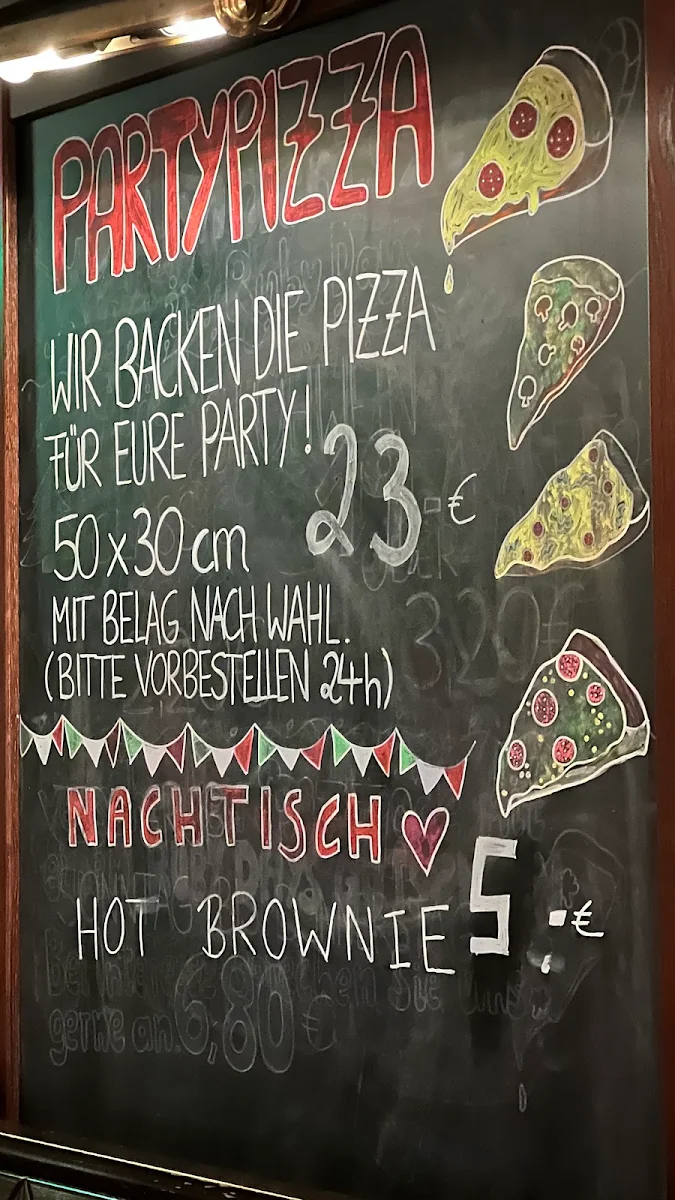 PARTYPIZZA
WIR BACKEN DIE PIZZA
FÜR EURE PARTY!
23.-€
50x30 cm
MIT BELAG NACH WAHL.
(BITTE VORBESTELLEN 24h)
NACHTISCH
HOT BROWNIE 5.-€
3,20€
SONNTAG
gerne an. 6,80 €